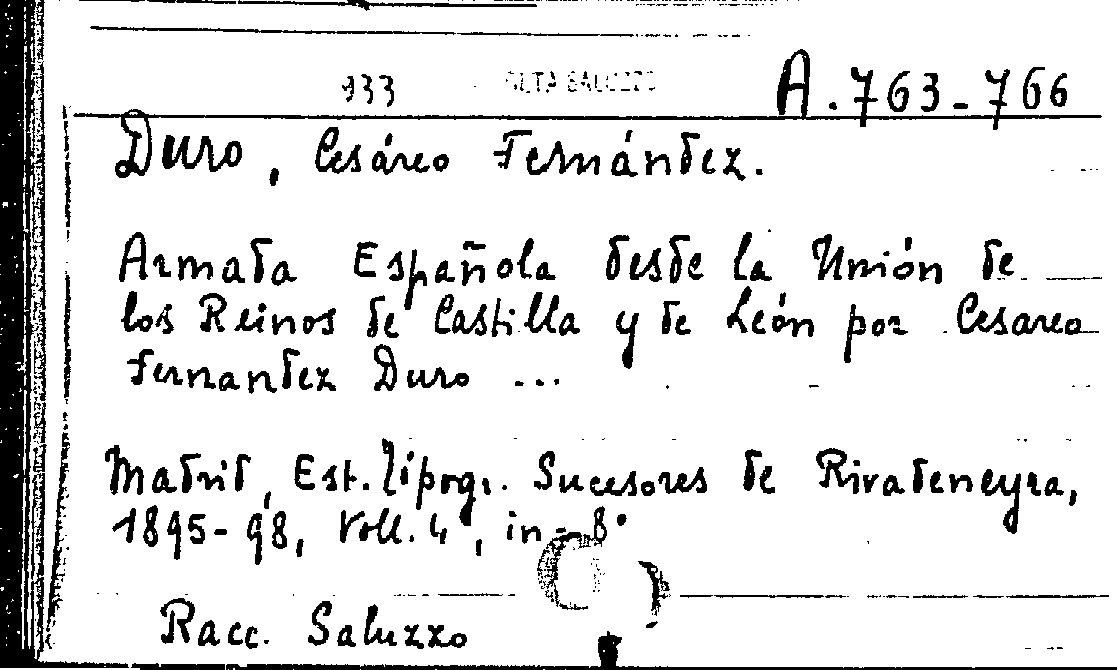 933 A.763-766
Duro, Cesáreo Fernández.
Armada Española desde la Unión de
los Reinos de Castilla y de León por Cesareo
Fernandez Duro ...
Madrid, Est. Tipogr. Sucesores de Rivadeneyra,
1895-98, Voll. 4, in-8°
Racc. Saluzzo